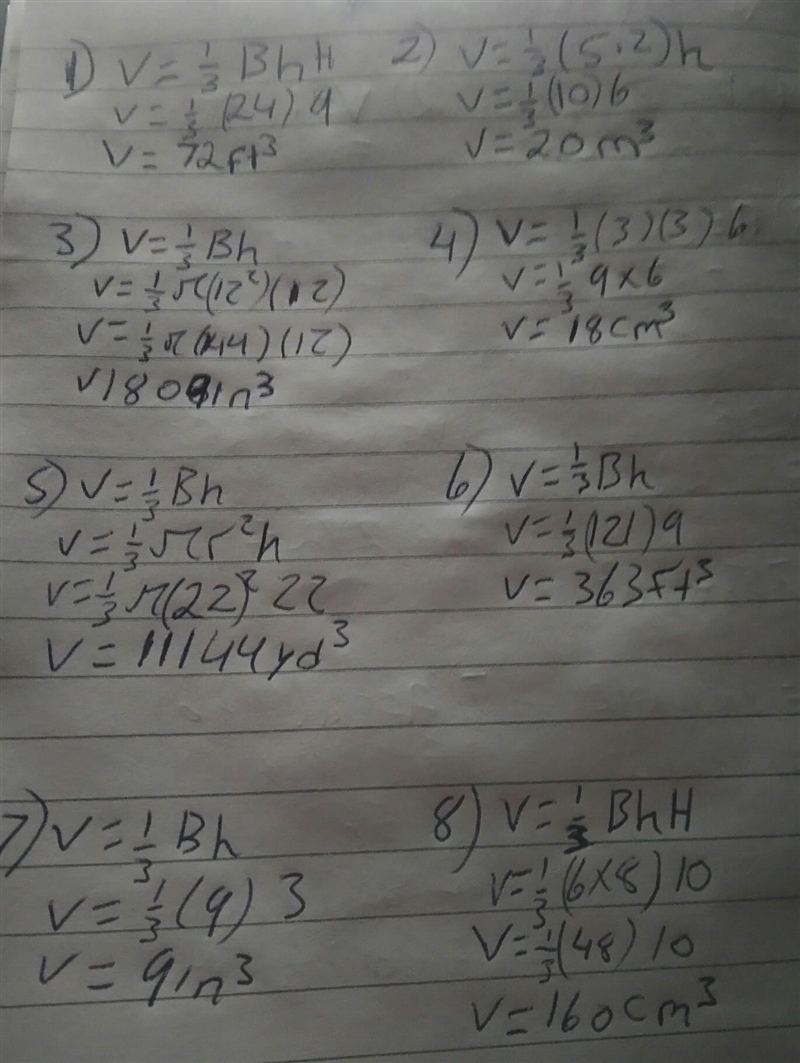 1) V = 1/3 BhH
V = 1/3 (24) 9
V = 72ft³
2) V = 1/3 (5·2)h
V = 1/3 (10) 6
V = 20m³
3) V = 1/3 Bh
V = 1/3 π(12²)(12)
V = 1/3 π(144)(12)
V 1809in³
4) V = 1/3 (3)(3) 6
V = 1/3 9×6
V = 18cm³
5) V = 1/3 Bh
V = 1/3 πr²h
V = 1/3 π(22)² 22
V = 11144yd³
6) V = 1/3 Bh
V = 1/3 (121) 9
V = 363ft³
7) V = 1/3 Bh
V = 1/3 (9) 3
V = 9in³
8) V = 1/3 BhH
V = 1/3 (6×8) 10
V = 1/3 (48) 10
V = 160cm³